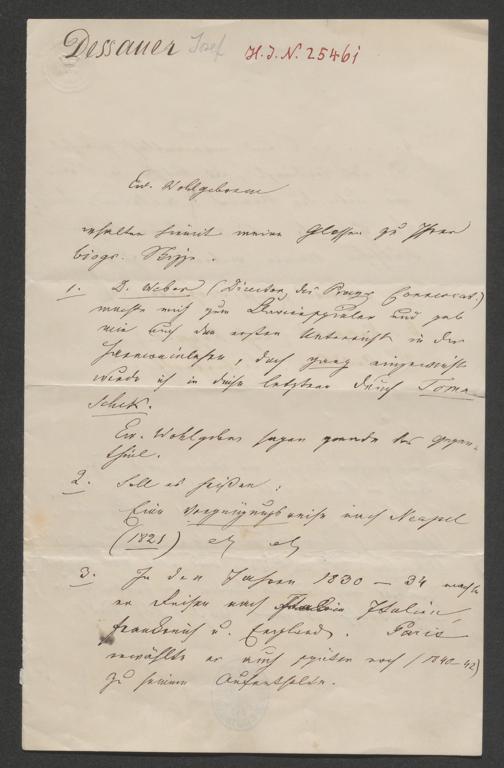 Dessauer Josef H.I.N. 25461
Ew. Wohlgeboren
erhalten hiemit meine Glossen zu Ihrer
biogr. Skizze.
1. D. Weber (Director des Prager Conservat.)
machte mich zum Klavierspieler und gab
mir auch den ersten Unterricht in der
Harmonielehre, doch ganz eingeweiht
wurde ich in diese letztere durch Toma-
schek.
Ew. Wohlgeb. sagen gerade das Gegen-
theil.
2. Soll es heißen:
Eine Vergnügungsreise nach Neapel
(1821)
3. In den Jahren 1830 – 34 machte
er Reisen nach Italien,
Frankreich u. England. Paris
erwählte er auch später noch (1840–42)
zu seinem Aufenthalte.